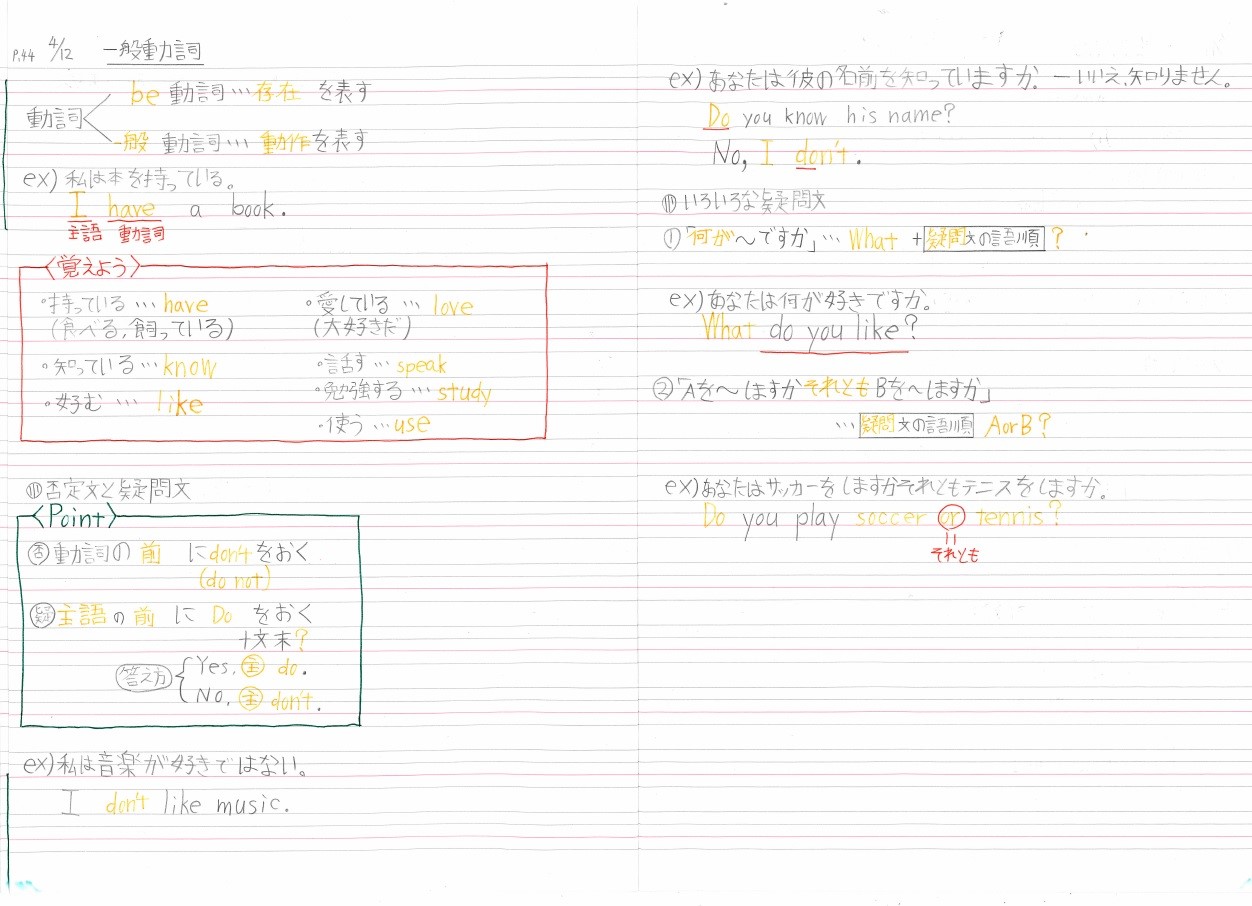 P.44 4/12 一般動詞
動詞
be 動詞…存在 を表す
一般 動詞… 動作を表す
ex) 私は本を持っている。
I have a book.
主語 動詞
〈覚えよう〉
・持っている … have
(食べる,飼っている)
・知っている … know
・好む … like
・愛している … love
(大好きだ)
・話す … speak
・勉強する … study
・使う … use
否定文と疑問文
〈Point〉
否 動詞の 前 にdon'tをおく
(do not)
疑 主語の 前 に Do をおく
+文末?
答え方
Yes, 主 do.
No, 主 don't.
ex)私は音楽が好きではない。
I don't like music.
ex)あなたは彼の名前を知っていますか。ーいいえ、知りません。
Do you know his name?
No, I don't.
いろいろな疑問文
①「何が〜ですか」… What +疑問文の語順?
ex)あなたは何が好きですか。
What do you like?
②「Aを〜しますかそれともBを〜しますか」
…疑問文の語順 AorB?
ex)あなたはサッカーをしますかそれともテニスをしますか。
Do you play soccer or tennis?
それとも